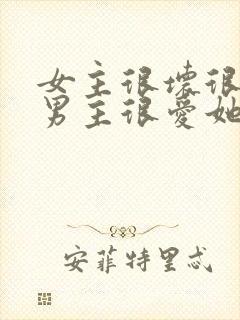 女主很壞很
男主很愛她
安菲特里忒